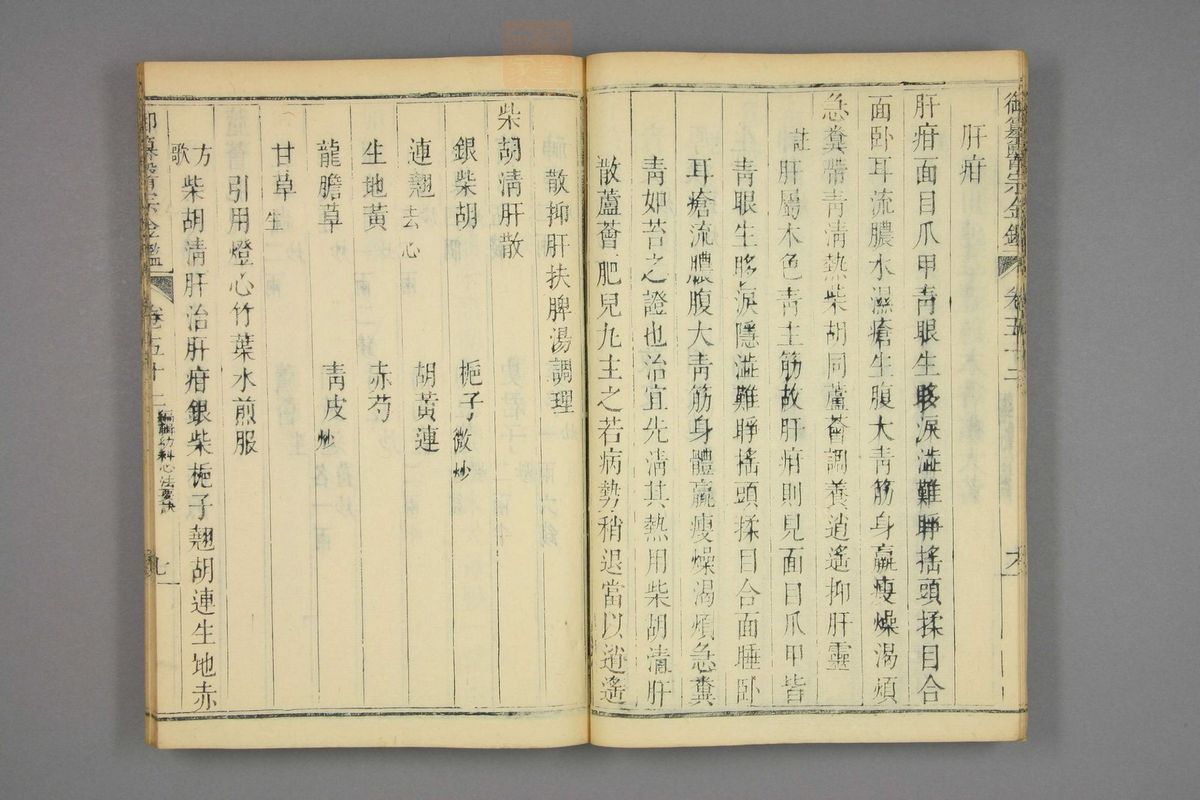 御纂醫宗金鑑 卷五十二 六
肝疳
肝疳面目爪甲青眼生眵淚澁難睜搖頭揉目合
面卧耳流膿水濕瘡生腹大青筋身羸瘦燥渴煩
急糞帶青清熱柴胡同蘆薈調養逍遙抑肝靈
註肝屬木色青主筋故肝疳則見面目爪甲皆
青眼生眵淚隱澁難睜搖頭揉目合面睡卧
耳瘡流膿腹大青筋身體羸瘦燥渴煩急糞
青如苔之證也治宜先淸其熱用柴胡淸肝
散蘆薈肥兒丸主之若病勢稍退當以逍遙
散抑肝扶脾湯調理
柴胡淸肝散
銀柴胡 梔子微炒
連翹去心 胡黃連
生地黃 赤芍
龍膽草 青皮炒
甘草生
引用燈心竹葉水煎服
方歌柴胡清肝治肝疳銀柴梔子翹胡連生地赤
御纂醫宗金鑑 卷五十二 編輯幼科心法要訣 七